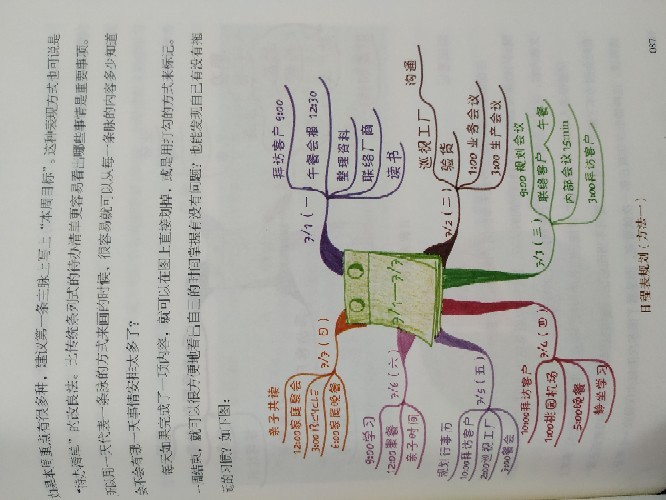 如果本周重点有很多种，建议第一条主脉上写上“本周目标”。这种表现方式也可说是
“待办清单”的改良法。比传统条列式的待办清单更容易看出哪些事情是重要事项。
所以用一天代表一条脉的方式来画的时候，很容易就可以从每一条脉的内容多少知道
会不会有哪一天事情安排太多了？
每天如果完成了一项内容，就可以在图上直接划掉，或是用打勾的方式来标记。
一周结束，就可以很方便地看出自己的时间掌握有没有问题？也能发现自己有没有拖
延的习惯？如下图：
9/1—9/7
9/1（一）
拜访客户 9:00
午餐会报 12:30
整理资料
联络厂商
读书
9/2（二）
巡视工厂
沟通
验货
1:00 业务会议
3:00 生产会议
9/3（三）
9:00 规划会议
联络客户
午餐
内部会议 15min
3:00 拜访客户
9/4（四）
10:00 拜访客户
1:00 桃园机场
5:00 晚餐
静坐学习
9/5（五）
规划行事历
10:00 拜访客户
2:00 巡视工厂
7:00 餐会
9/6（六）
9:00 学习
12:00 聚餐
亲子时间
9/7（日）
亲子共读
12:00 家庭聚会
6:00 家庭晚餐
日程表规划（方法一）
087